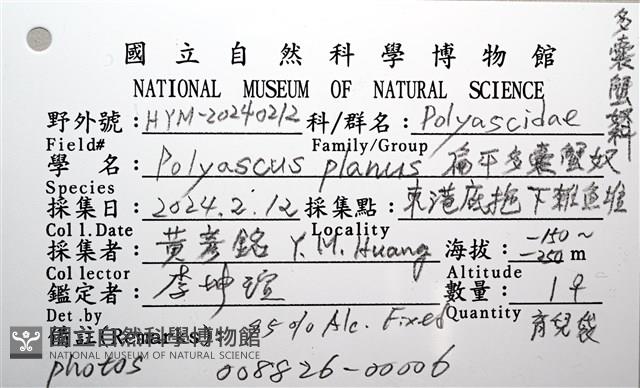 多囊蟹奴科
國立自然科學博物館
NATIONAL MUSEUM OF NATURAL SCIENCE
野外號: HYM-20240212 科/群名: Polyascidae
Field# Family/Group
學 名: Polyascus planus 扁平多囊蟹奴
Species
採集日: 2024.2.12 採集點: 東港底拖下雜魚堆
Coll.Date Locality
採集者: 黃彥銘 Y.M.Huang 海拔: -150~-250 m
Collector Altitude
鑑定者: 李坤瑄 數量: 1♀
Det.by Quantity
Remarks 95% Alc. Fixed 育兒袋
國立自然科學博物館
NATIONAL MUSEUM OF NATURAL SCIENCE
photos 008826-00006